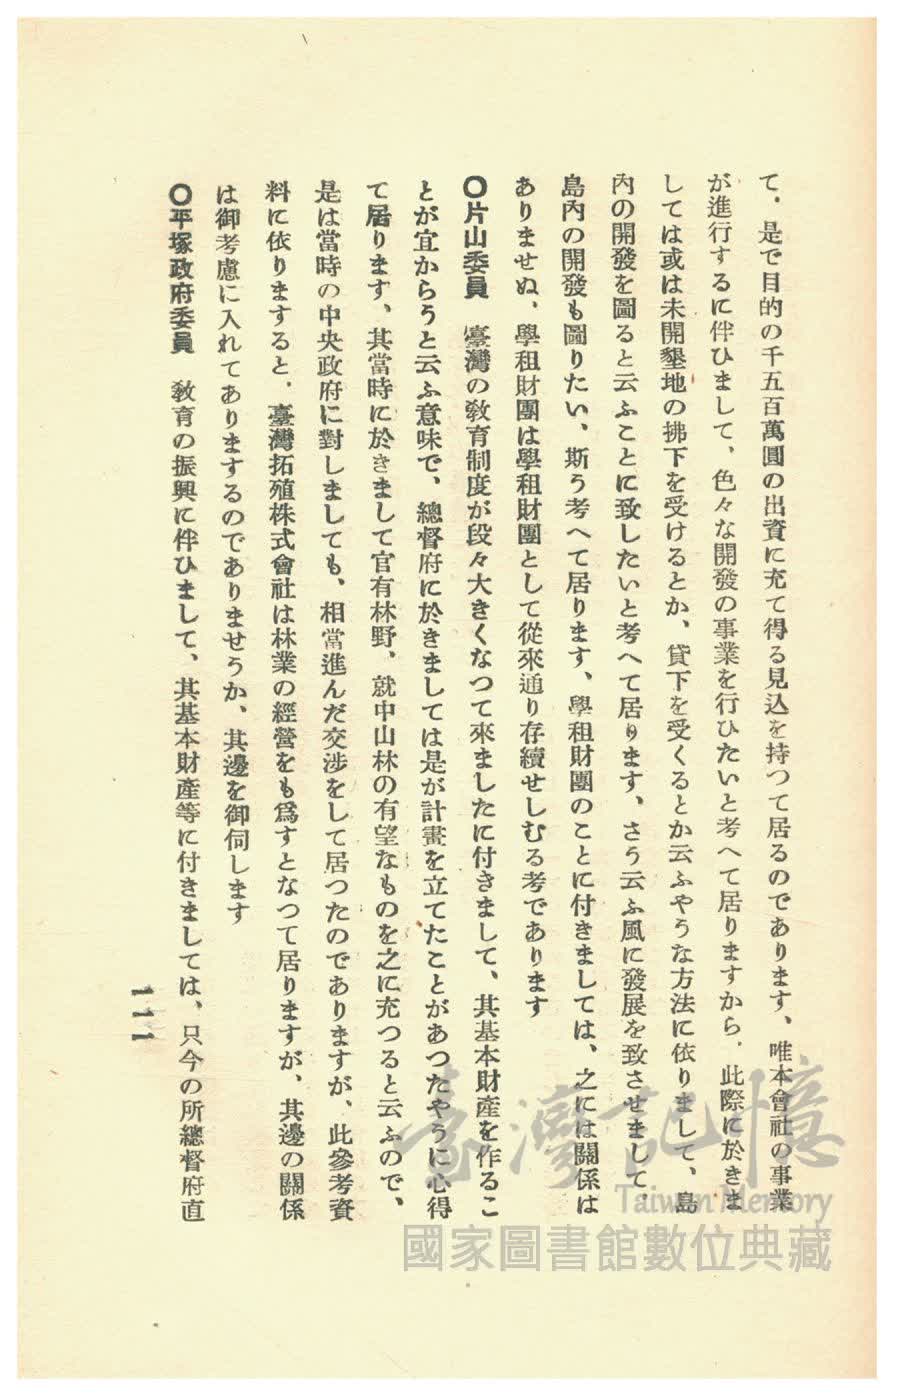 て、是で目的の千五百萬圓の出資に充て得る見込を持つて居るのであります、唯本會社の事業
が進行するに伴ひまして、色々な開發の事業を行ひたいと考へて居りますから、此際に於きま
しては或は未開墾地の拂下を受けるとか、貸下を受くるとか云ふやうな方法に依りまして、島
內の開發を圖ると云ふことに致したいと考へて居ります、さう云ふ風に發展を致させまして、
島內の開發も圖りたい、斯う考へて居ります、學租財團のことに付きましては、之には關係は
ありませぬ、學租財團は學租財團として從來通り存續せしむる考であります
〇片山委員　臺灣の敎育制度が段々大きくなつて來ましたに付きまして、其基本財產を作るこ
とが宜からうと云ふ意味で、總督府に於きましては是が計畫を立てたことがあつたやうに心得
て居ります、其當時に於きまして官有林野、就中山林の有望なものを之に充つると云ふので、
是は當時の中央政府に對しましても、相當進んだ交涉をして居つたのでありますが、此參考資
料に依りますると、臺灣拓殖株式會社は林業の經營をも爲すとなつて居りますが、其邊の關係
は御考慮に入れてありまするのでありませうか、其邊を御伺します
〇平塚政府委員　敎育の振興に伴ひまして、其基本財產等に付きましては、只今の所總督府直
一一一
臺灣記憶
Taiwan Memory
國家圖書館數位典藏